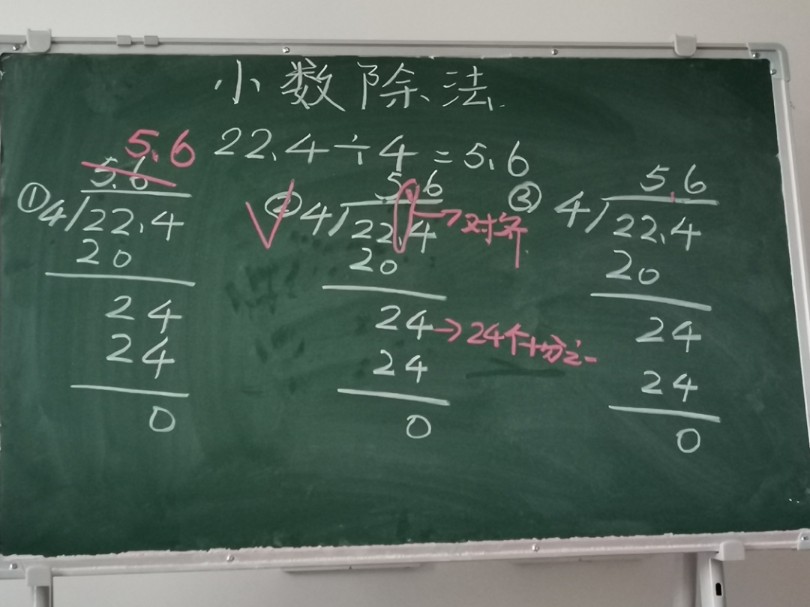 小数除法
22.4÷4=5.6
5.6
① 5.6
4/22.4
20
24
24
0
✓ ② 5.6
4/22.4→对齐
20
24→24个十分之一
24
0
③ 5.6
4/22.4
20
24
24
0